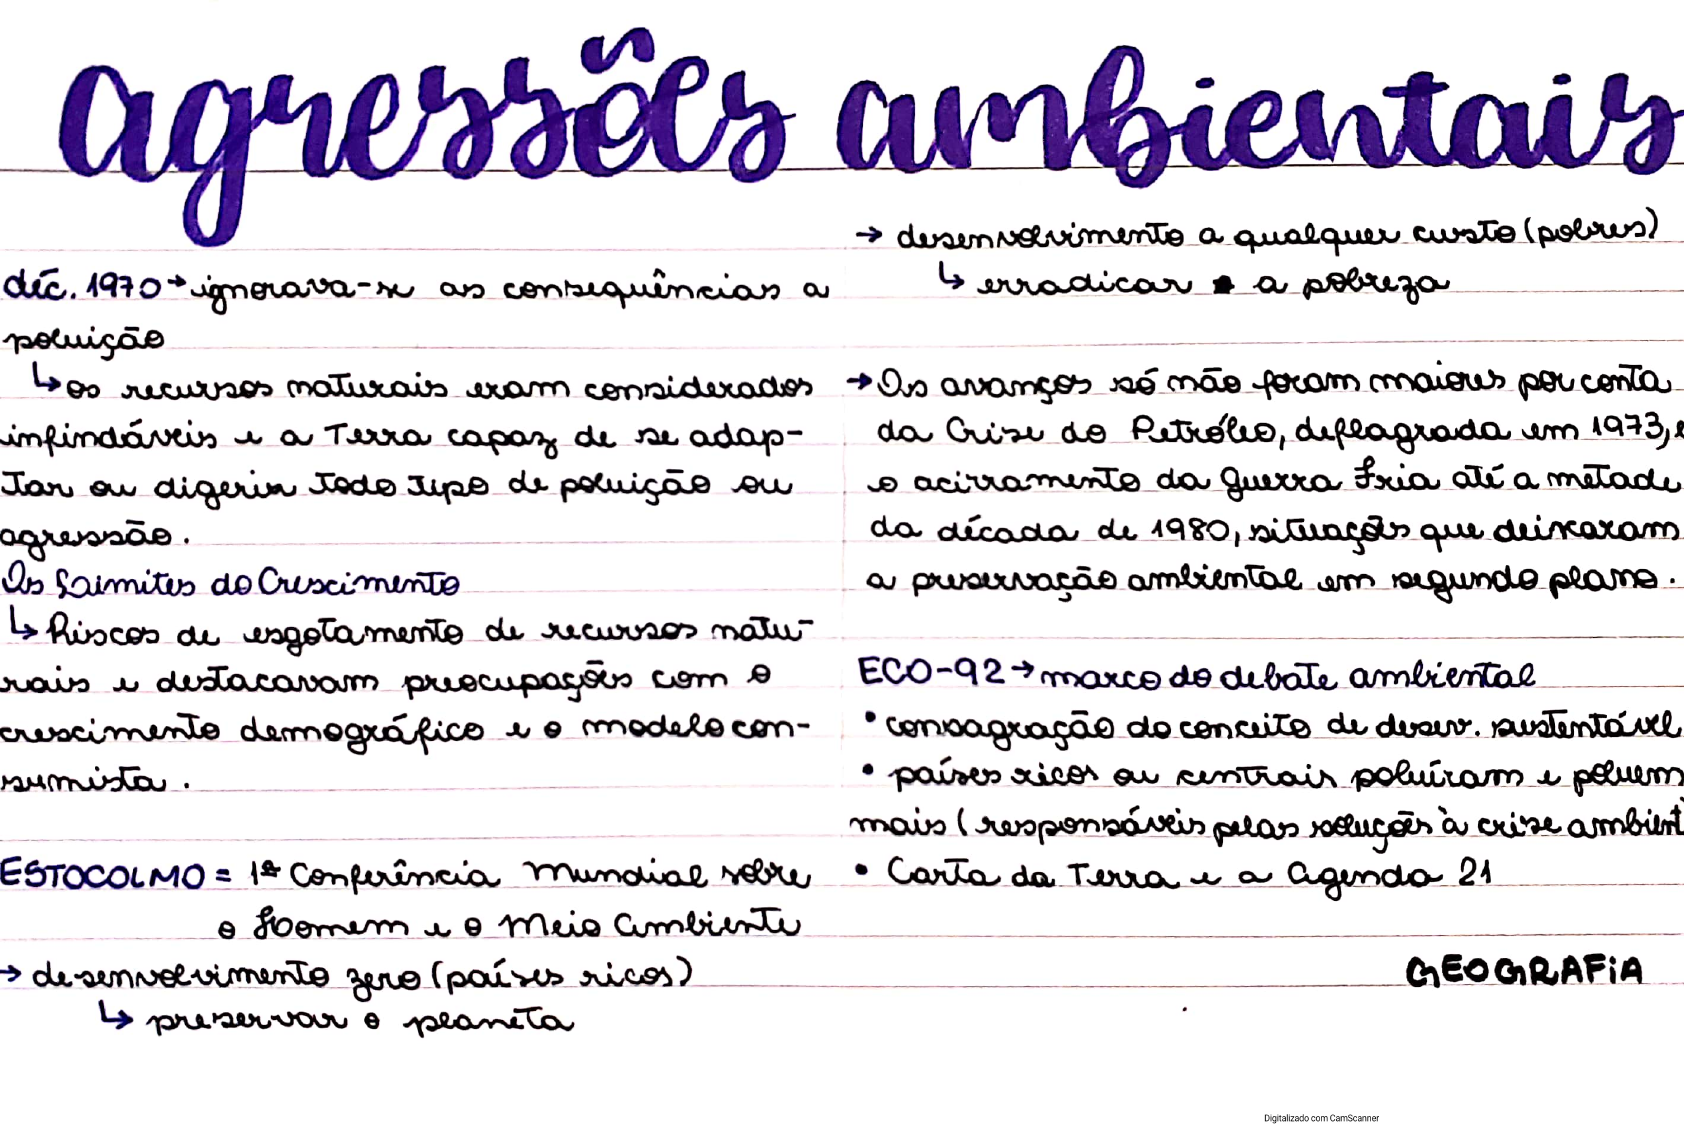 agressões ambientais
déc. 1970 → ignorava-se as consequências a
poluição
↳ os recursos naturais eram considerados
infindáveis e a Terra capaz de se adap-
tar ou digerir todo tipo de poluição ou
agressão.
Os Limites do Crescimento
↳ Riscos de esgotamento de recursos natu-
rais e destacavam preocupações com o
crescimento demográfico e o modelo con-
sumista.
ESTOCOLMO = 1ª Conferência Mundial sobre
o Homem e o Meio Ambiente
→ desenvolvimento zero (países ricos)
↳ preservar o planeta
→ desenvolvimento a qualquer custo (pobres)
↳ erradicar a pobreza
→ Os avanços só não foram maiores por conta
da Crise do Petróleo, deflagrada em 1973, e
o acirramento da Guerra Fria até a metade
da década de 1980, situações que deixaram
a preservação ambiental em segundo plano.
ECO-92 → marco do debate ambiental
• consagração do conceito de desenv. sustentável
• países ricos ou centrais poluíram e poluem
mais (responsáveis pelas soluções à crise ambient
• Carta da Terra e a Agenda 21
GEOGRAFiA
Digitalizado com CamScanner